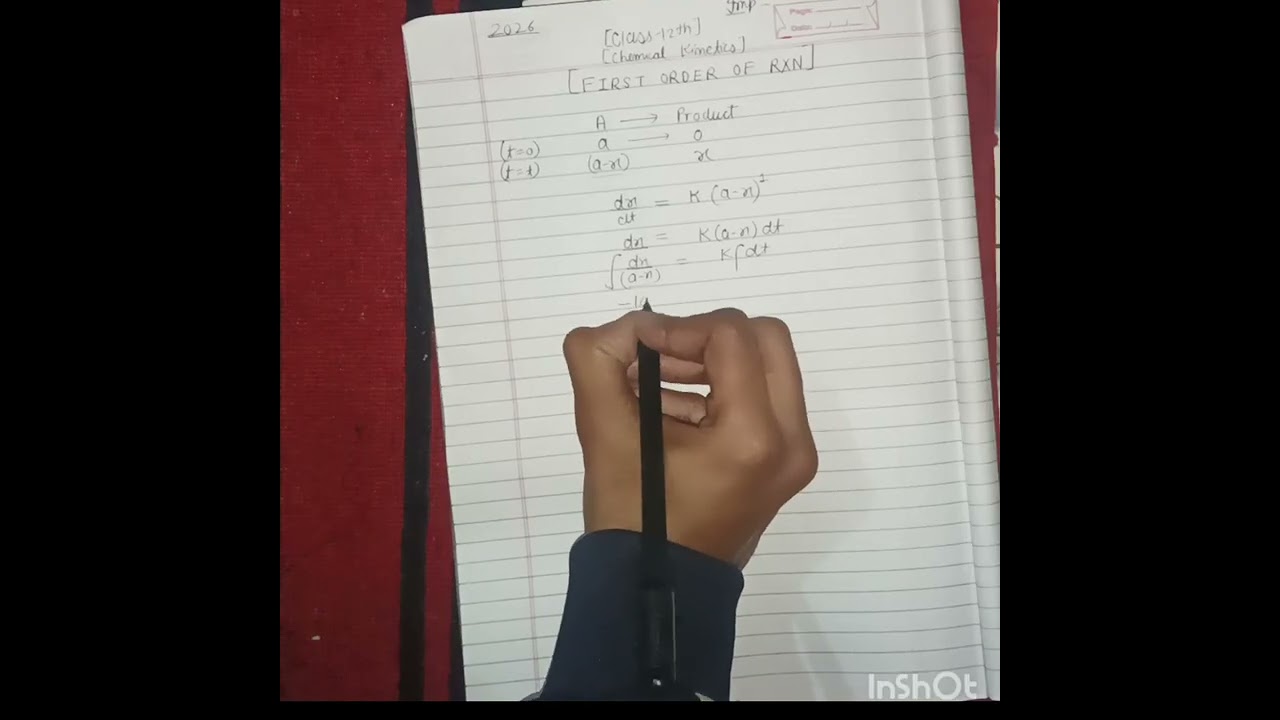 2026
Imp
Page:
Date:
[Class-12th]
[Chemical Kinetics]
[FIRST ORDER OF RXN]
A → Product
(t=0) a → 0
(t=t) (a-x) x
dx/dt = K (a-x)¹
dx = K(a-x) dt
∫ dx/(a-x) = K∫dt
InShOt